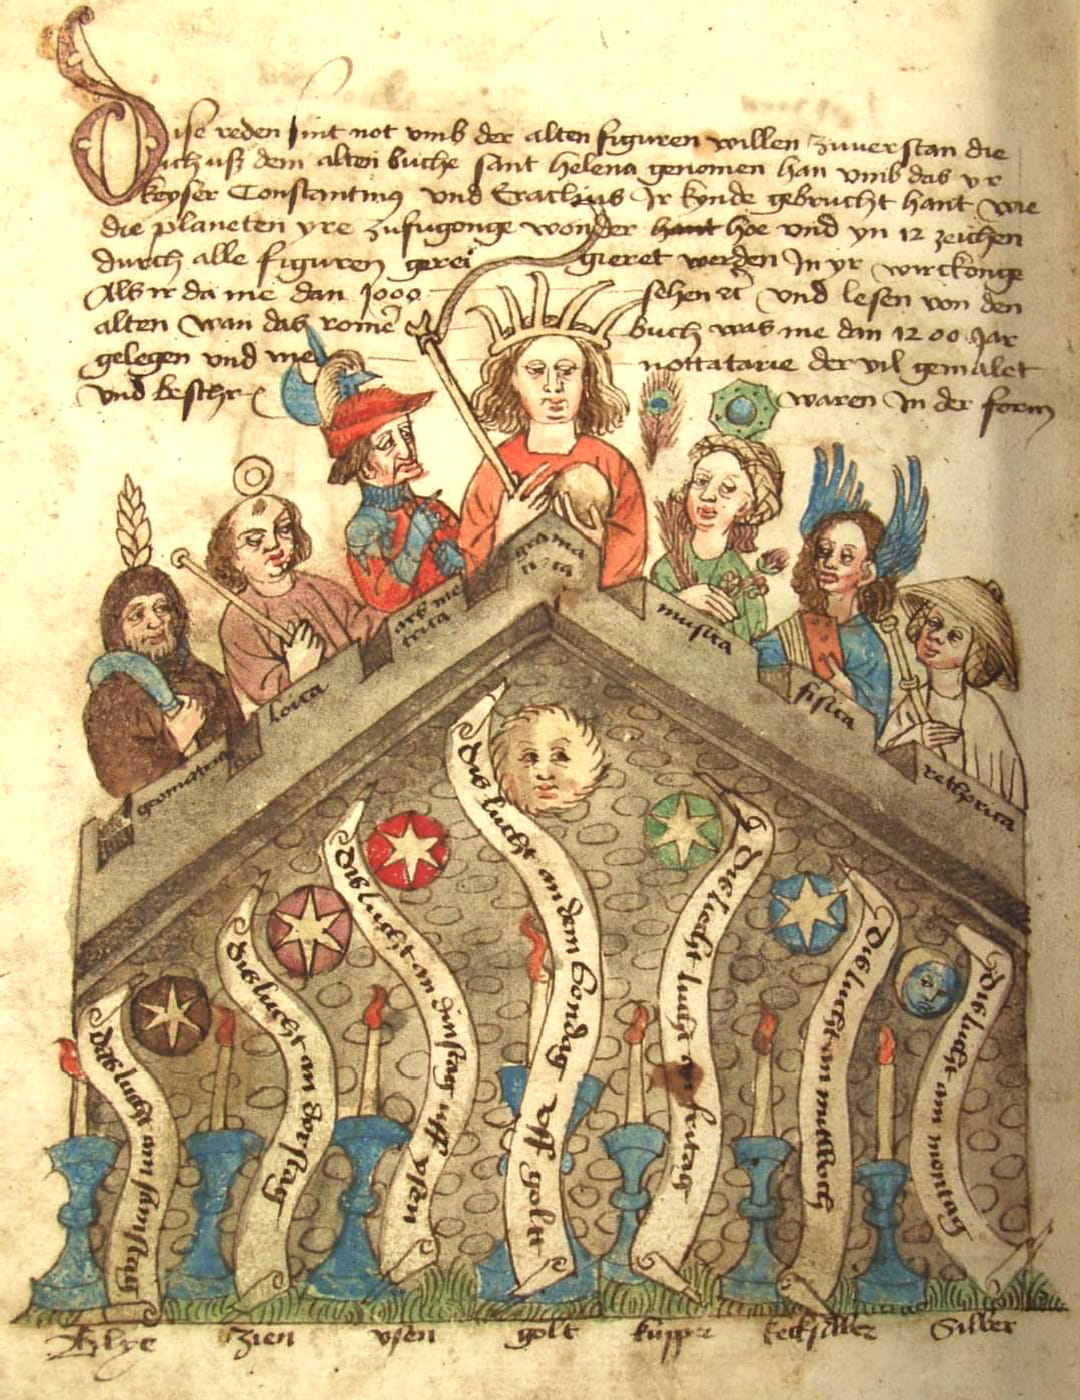 Dise reden sint not umb der alten figuren willen zuverstan die
ich uß dem alten buche sant Helena genomen han umb das yr
keyser Constantinus und Eraclius Ir kynde gebrucht hant wie
die planeten yre zufugonge wonder hant hoe und yn 12 zeichen
durch alle figuren gerei gieret werden In yr wirckonge
Als ir da me dan 1000 sehen und lesen von den
alten wan das rome buch was me dan 1200 Jar
gelegen und me nottatarie der vil gemalet
und beschr waren In der form
gramatica
ars metrica
musica
loica
fisica
geometria
rethorica
dis lucht an dem Sondag uff golt
dis lucht an dinstag uff ysen
Dis liecht lucht am fritag
dis lucht an dorstag
Dis lucht am mitwoch
das lucht am samstag
Dis lucht am montag
Blye zien ysen golt kupper kecksilber Silber